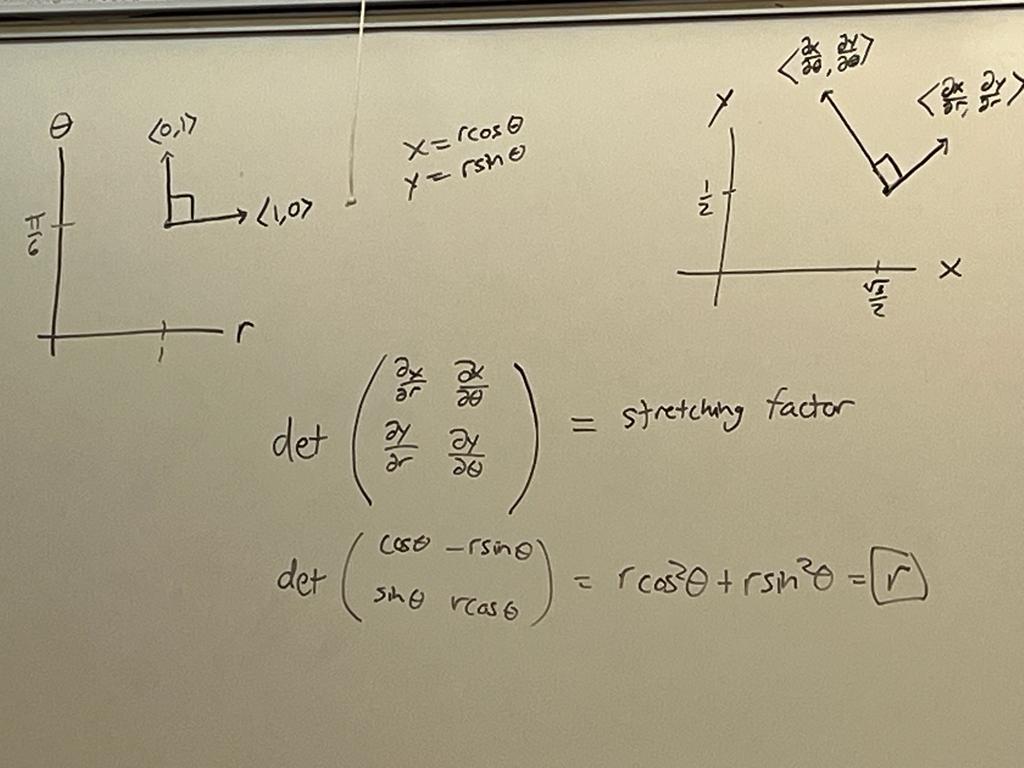 θ
⟨0,1⟩
π/6
⟨1,0⟩
r
1
x = rcosθ
y = rsinθ
⟨∂x/∂θ, ∂y/∂θ⟩
⟨∂x/∂r, ∂y/∂r⟩
y
1/2
x
√3/2
det ( ∂x/∂r ∂x/∂θ
∂y/∂r ∂y/∂θ ) = stretching factor
det ( cosθ −rsinθ
sinθ rcosθ ) = rcos²θ + rsin²θ = r